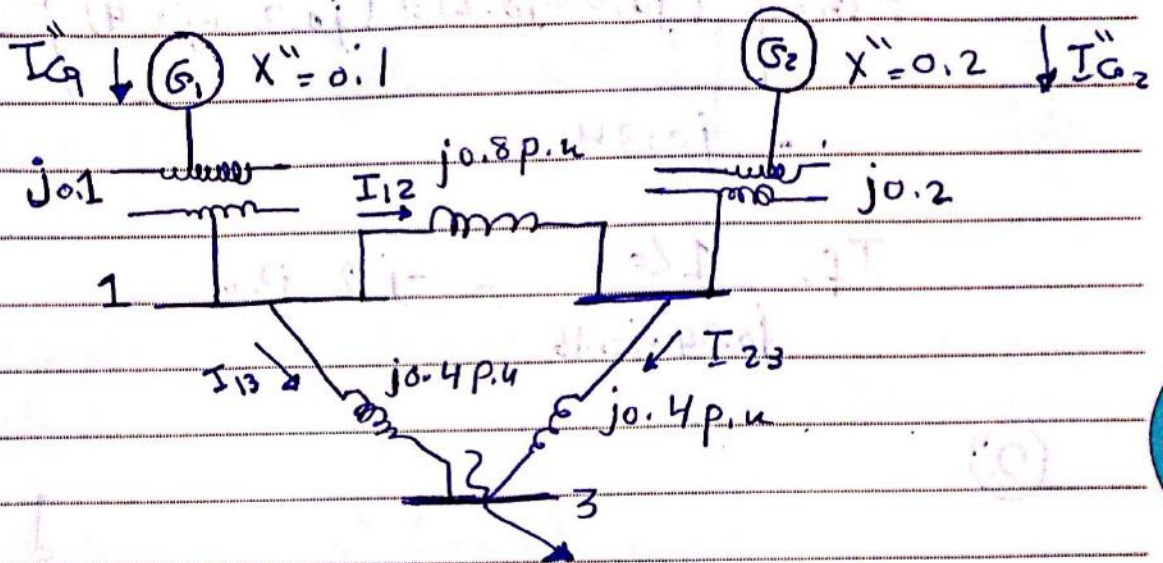 I"G1 G1 X"=0.1 G2 X"=0.2 I"G2
j0.1 I12 j0.8 p.u j0.2
1
I13 j0.4 p.u I23
j0.4 p.u
3